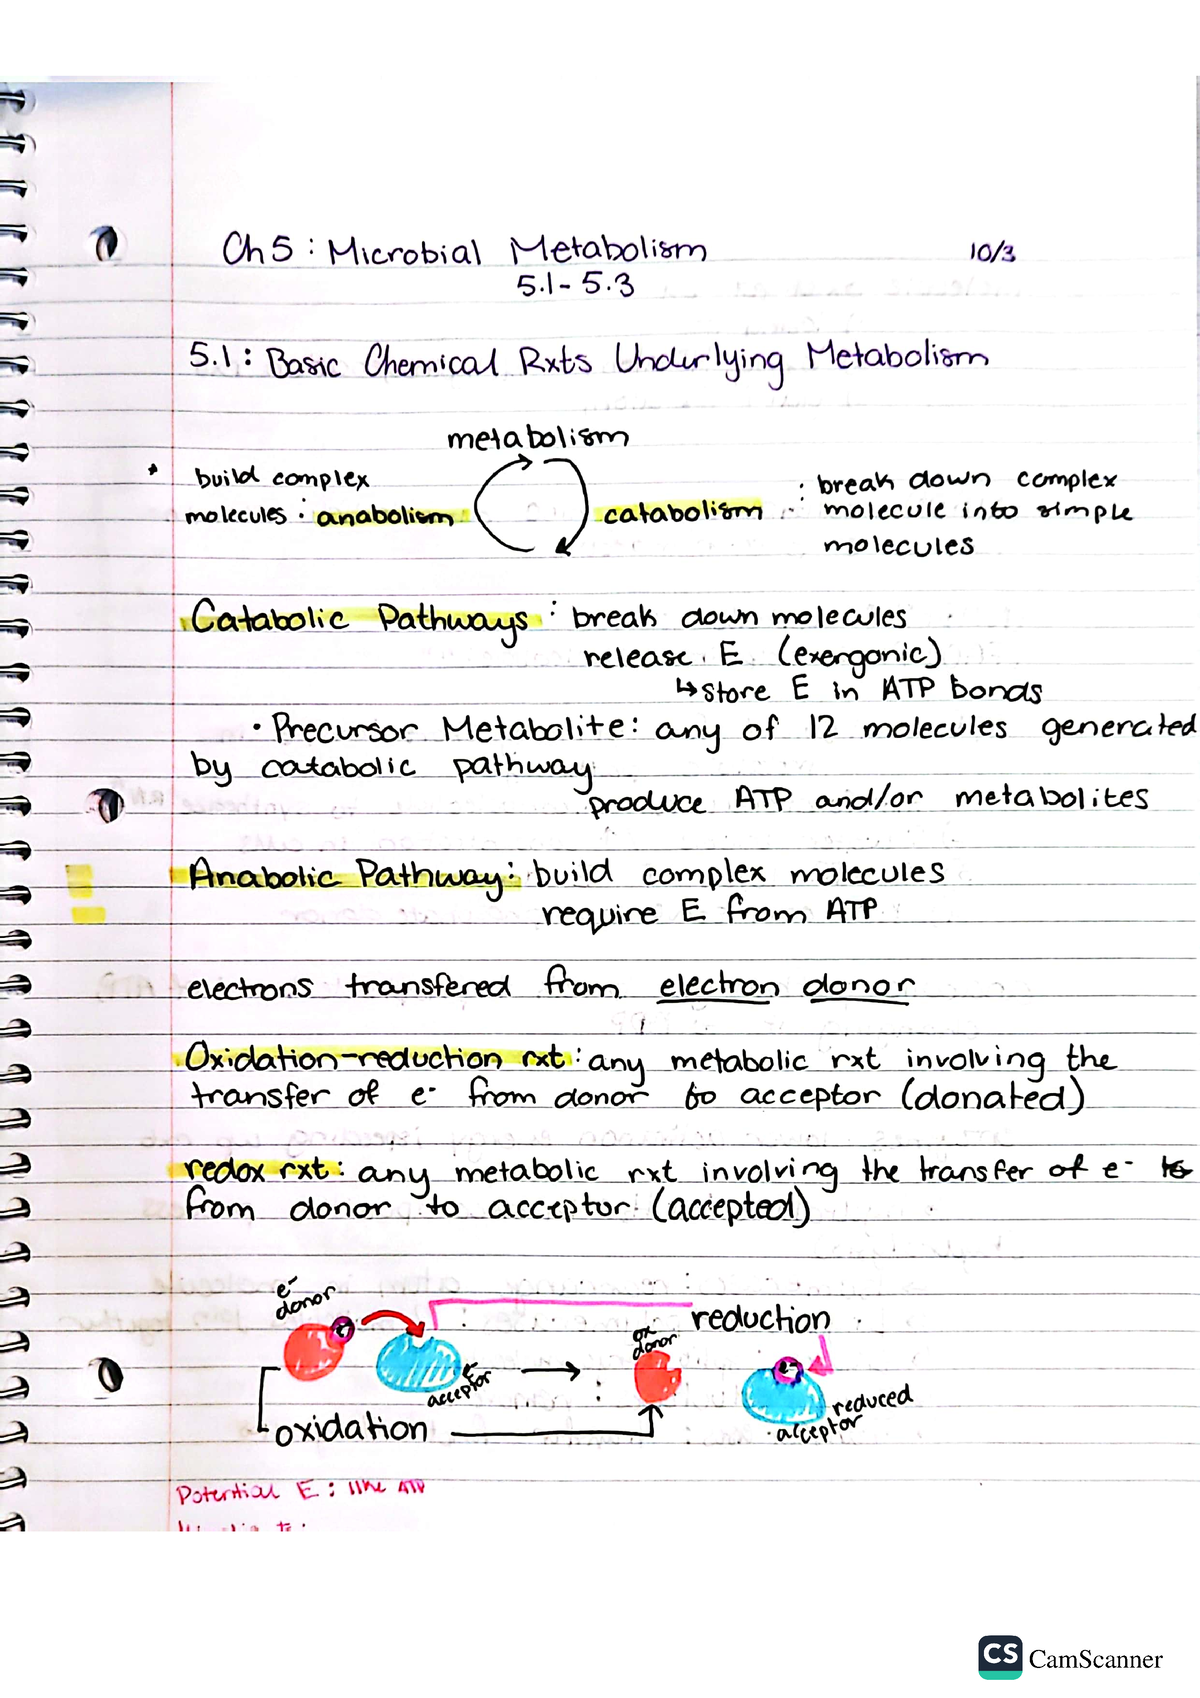 Ch 5 : Microbial Metabolism 10/3
5.1 - 5.3
5.1 : Basic Chemical Rxts Underlying Metabolism
metabolism
build complex
molecules : anabolism
catabolism
: break down complex
molecule into simple
molecules
Catabolic Pathways : break down molecules
release E (exergonic)
↳ store E in ATP bonds
• Precursor Metabolite: any of 12 molecules generated
by catabolic pathway
produce ATP and/or metabolites
Anabolic Pathway: build complex molecules
require E from ATP
electrons transfered from electron donor
Oxidation-reduction rxt: any metabolic rxt involving the
transfer of e- from donor to acceptor (donated)
redox rxt: any metabolic rxt involving the transfer of e- to
from donor to acceptor (accepted)
e-
donor
reduction
ox
donor
e-
e-
acceptor
e-
reduced
acceptor
oxidation
Potential E: like ATP
CS CamScanner